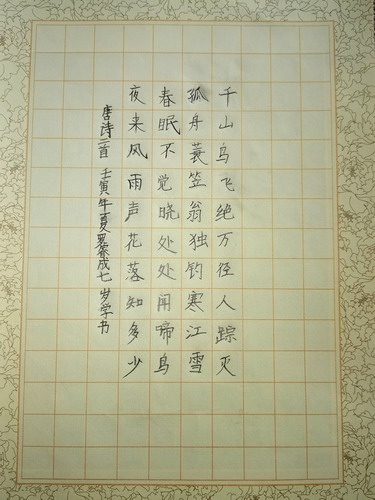 千山鸟飞绝万径人踪灭
孤舟蓑笠翁独钓寒江雪
春眠不觉晓处处闻啼鸟
夜来风雨声花落知多少
唐诗二首 壬寅年夏 成七岁学书